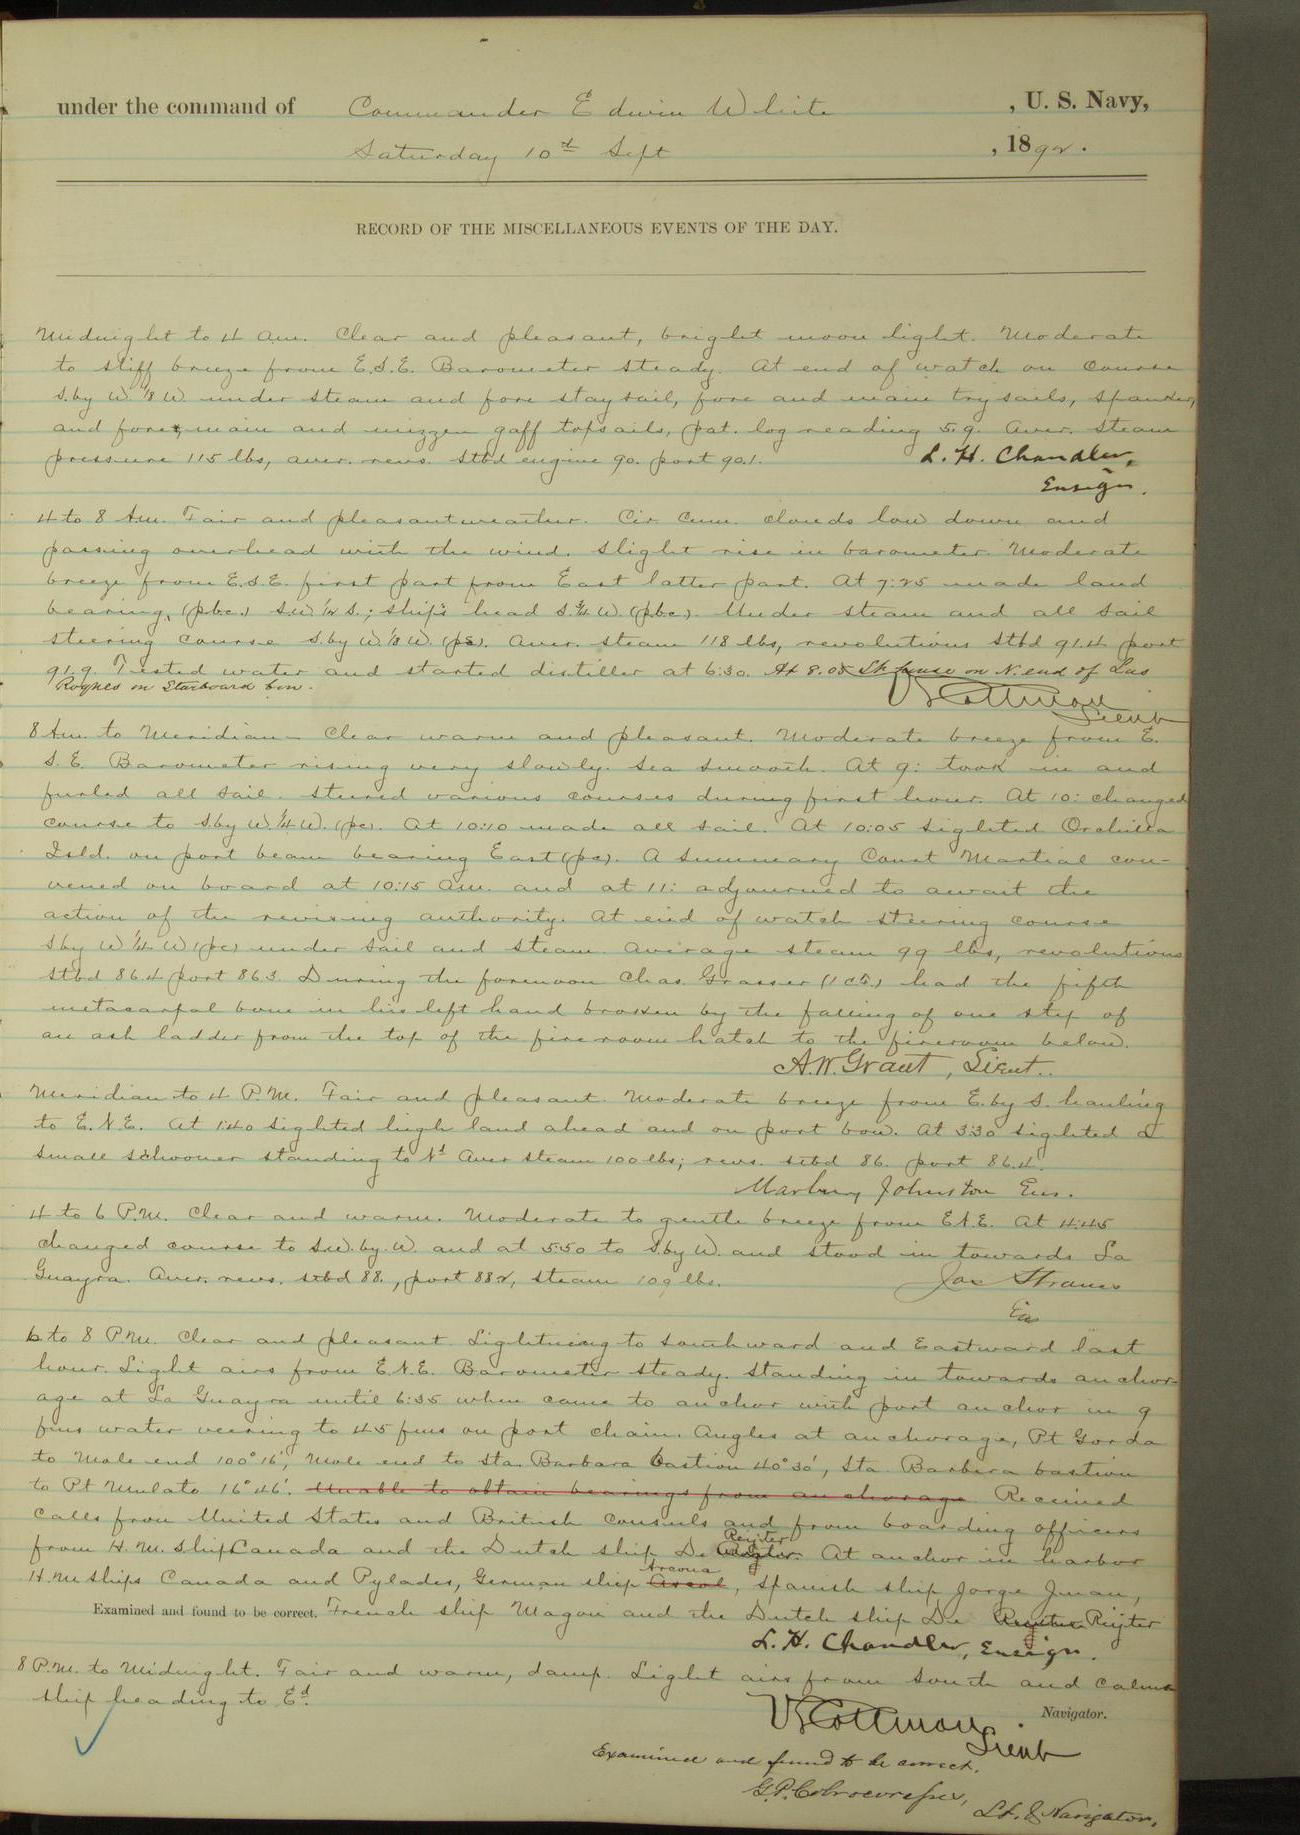 under the command of Commander Edwin White , U. S. Navy,
Saturday 10th Sept , 1892.
RECORD OF THE MISCELLANEOUS EVENTS OF THE DAY.
Midnight to 4 Am. Clear and pleasant, bright moon light. Moderate
to stiff breeze from E.S.E. Barometer steady. At end of watch on course
S. by W. 1/8 W. under steam and fore stay sail, fore and main try sails, spanker,
and fore, main and mizzen gaff topsails, pat. log reading 5.9. Aver. steam
pressure 115 lbs, aver. revs. stbd engine 90. port 90.1. L. H. Chandler,
Ensign.
4 to 8 Am. Fair and pleasant weather. Cir. Cum. clouds low down and
passing overhead with the wind. Slight rise in barometer. Moderate
breeze from E.S.E. first part from East latter part. At 7:25 made land
bearing, (p.b.c.) S.W. 1/2 S.; ship's head S. 3/4 W. (p.b.c.). Under steam and all sail
steering course S. by W. 1/8 W. (p.c.). Aver. steam 118 lbs, revolutions stbd 91.4 port
91.9. Tested water and started distiller at 6:30. At 8.05 Lt. house on N. end of Los
Roques on Starboard bow. V S Cottman
Lieut
8 Am. to Meridian - Clear warm and pleasant. Moderate breeze from E.
S. E. Barometer rising very slowly. Sea smooth. At 9: took in and
furled all sail. steered various courses during first hour. At 10: changed
course to S by W 1/4 W. (p.c.). At 10:10 made all sail. At 10:05 sighted Orchilla
Isld. on port beam bearing East (p.c.). A Summary Court Martial con-
vened on board at 10:15 am. and at 11: adjourned to await the
action of the revising authority. At end of watch steering course
S by W 1/4 W (p.c.) under sail and steam. Average steam 99 lbs, revolutions
stbd 86.4 port 86.3. During the forenoon Chas. Grasser (1 c f.) had the fifth
metacarpal bone in his left hand broken by the falling of one step of
an ash ladder from the top of the fireroom hatch to the fireroom below.
A. W. Grant, Lieut.
Meridian to 4 P.M. Fair and pleasant. Moderate breeze from E. by S. hauling
to E.N.E. At 1:40 sighted high land ahead and on port bow. At 3:30 sighted a
small schooner standing to Nd. Aver steam 100 lbs; revs. stbd 86. port 86.4.
Marbury Johnston Ens.
4 to 6 P.M. Clear and warm. Moderate to gentle breeze from E.N.E. At 4:45
changed course to S.W. by W. and at 5:50 to S. by W. and stood in towards La
Guayra. Aver. revs. stbd 88., port 88.2, steam 109 lbs. Jos Strauss
Ens
6 to 8 P.M. Clear and pleasant. Lightning to Southward and Eastward last
hour. Light airs from E.N.E. Barometer steady. Standing in towards anchor-
age at La Guayra until 6:35 when came to anchor with port anchor in 9
fms water veering to 45 fms on port chain. Angles at anchorage, Pt Gorda
to Mole end 100° 16', Mole end to Sta. Barbara bastion 40° 30', Sta. Barbara bastion
to Pt Mulato 16° 46'. Unable to obtain bearings from anchorage. Received
calls from United States and British consuls and from boarding officers
from H. M. ship Canada and the Dutch ship De Reijter. At anchor in harbor
H. M ships Canada and Pylades, German ship Arcona, Spanish ship Jorge Juan,
Examined and found to be correct. French ship Magon and the Dutch ship De Reijter
L. H. Chandler, Ensign.
8 P.M. to Midnight. Fair and warm, damp. Light airs from South and calms
ship heading to Ed.
Navigator.
V S Cottman
Lieut
Examined and found to be correct.
Lt. & Navigator.